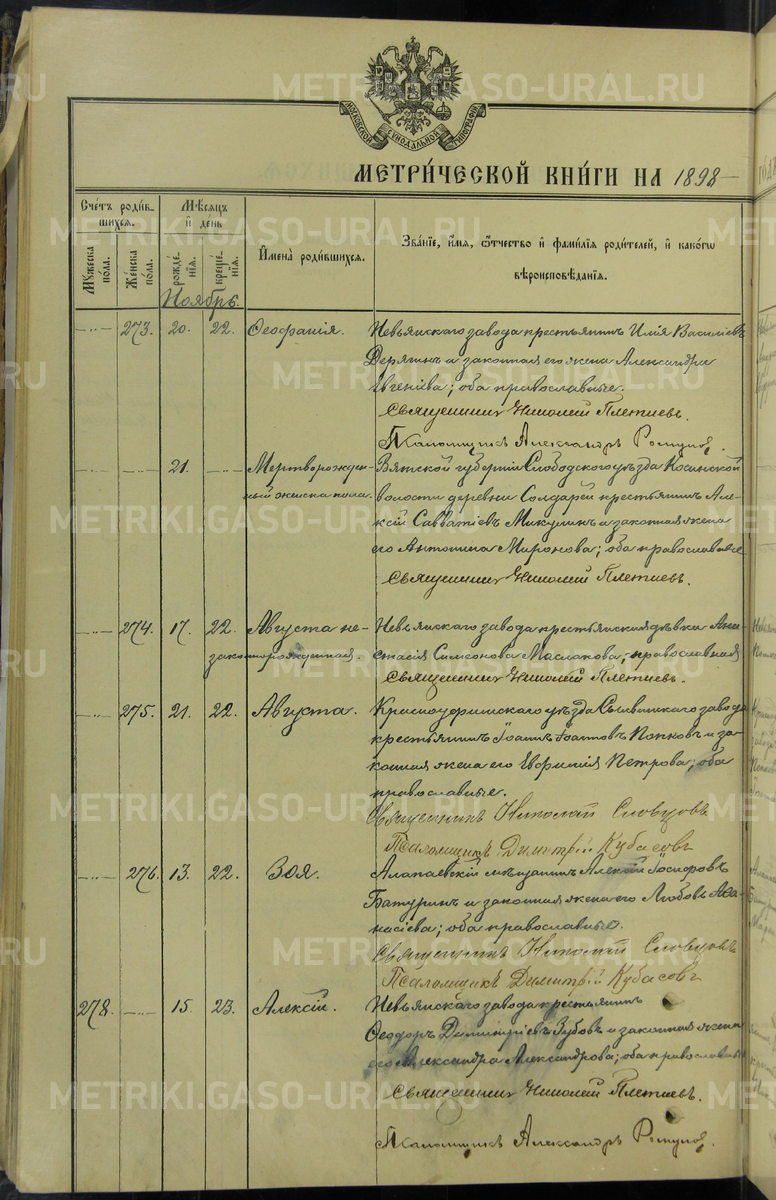 МОСКОВСКОЙ СѴНОДАЛЬНОЙ ТИПОГРАФІИ
МЕТРИ́ЧЕСКОЙ КНИ́ГИ НА 1898
Сче́тъ роди́в-
шихся.
Мѣ́сяцъ
и҆ день
Му́жеска по́ла.
Же́нска по́ла.
рожде́-
нїя.
креще́-
нїя.
И҆мена̀ роди́вшихся.
Зва́нїе, и҆́мя, ѻ҆́тчество и҆ фами́лїя роди́телей, и҆ какѡ́гѡ
вѣроисповѣ́данїя.
Ноябрь
273. 20. 22. Ѳеофанія. Невьянскаго завода крестьянинъ Илія Васильевъ
Дерягинъ и законная его жена Александра
Евгеніева; оба православные.
Священникъ Николай Плетневъ.
Псаломщикъ Александръ
21. Мертворожден- Вятской губерніи Слободскаго уѣзда Косинской
ный женска пола. волости деревни Солдарей крестьянинъ Але-
ксій Савватіевъ Микулинъ и законная жена
его Антонина Миронова; оба православные
Священникъ Николай Плетневъ.
274. 17. 22. Августа не- Невьянскаго завода крестьянская дѣвка Ана-
законнорожденная. стасія Симеонова Маслакова, православная
Священникъ Николай Плетневъ.
275. 21. 22. Августа. Красноуфимскаго уѣзда завода
крестьянинъ Іоаннъ Іоанновъ Попковъ и за-
конная жена его Евфимія Петрова; оба
православные.
Священникъ Николай Словцовъ
Псаломщикъ Димитрій Кубасовъ
276. 13. 22. Зоя. Алапаевскій мѣщанинъ Алексій Іосифовъ
Батуринъ и законная жена его Любовь Аѳа-
насіева; оба православные.
Священникъ Николай Словцовъ
Псаломщикъ Димитрій Кубасовъ
278. 15. 23. Алексій. Невьянскаго завода крестьянинъ
Ѳеодоръ Димитріевъ Зубовъ и законная жена
его Александра Александрова; оба православные
Священникъ Николай Плетневъ.
Псаломщикъ Александръ
METRIKI.GASO-URAL.RU